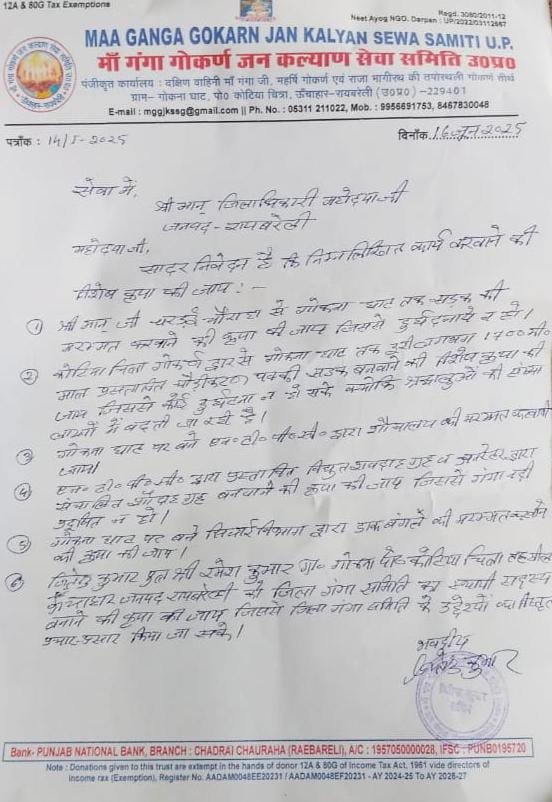 12A & 80G Tax Exemptions
Regd. 3080/2011-12
Neet Ayog NGO. Darpan : UP/2022/0312667
MAA GANGA GOKARN JAN KALYAN SEWA SAMITI U.P.
माँ गंगा गोकर्ण जन कल्याण सेवा समिति उ०प्र०
पंजीकृत कार्यालय : दक्षिण वाहिनी माँ गंगा जी, महर्षि गोकर्ण एवं राजा भागीरथ की तपोस्थली गोकर्ण तीर्थ
ग्राम- गोकना घाट, पो० कोटिया चित्रा, ऊँचाहार-रायबरेली (उ०प्र०) -229401
E-mail : mggjkssg@gmail.com || Ph. No. : 05311 211022, Mob.- 9956691753, 8467830048
पत्राँक : 14/5-2025
दिनाँक 16 जून 2025
सेवा में,
श्री मान् जिलाधिकारी महोदया जी
जनपद - रायबरेली
महोदया जी,
सादर निवेदन है कि निम्नलिखित कार्य करवाने की
विशेष कृपा की जाय : -
① श्री मान् जी चौराहा से गोकना घाट तक सड़क की
मरम्मत करवाने की कृपा की जाय जिससे दुर्घटनायें न हो।
② कोटिया चित्रा गोकर्ण द्वार से गोकना घाट तक दूरी लगभग 1700 मी०
मार्ग प्रस्तावित चौड़ीकरण पक्की सड़क बनवाने की विशेष कृपा की
जाय जिससे कोई दुर्घटना न हो सके क्योंकि श्रद्धालुओं की संख्या
लाखों में बढ़ती जा रही है।
③ गोकना घाट पर बने एन० टी० पी० सी० द्वारा शौचालय की मरम्मत करवायी
जाय।
④ एन० टी० पी० सी० द्वारा प्रस्तावित विद्युत शवदाह गृह व जनरेटर द्वारा
संचालित शवदाह गृह बनवाने की कृपा की जाय जिससे गंगा नदी
प्रदूषित न हो।
⑤ गोकना घाट पर बने सिंचाई विभाग द्वारा डाक बंगले की मरम्मत करवाने
की कृपा की जाय।
⑥ जितेन्द्र कुमार पुत्र श्री रमेश कुमार ग्रा० गोकना पो० कोटिया चित्रा तहसील
ऊँचाहार जनपद रायबरेली को जिला गंगा समिति का स्थायी सदस्य
बनाने की कृपा की जाय जिससे जिला गंगा समिति के उद्देश्यों का विस्तृत
प्रचार-प्रसार किया जा सके।
भवदीय
जितेन्द्र कुमार
Bank- PUNJAB NATIONAL BANK, BRANCH : CHADRAI CHAURAHA (RAEBARELI), A/C : 1957050000028, IFSC : PUNB0195720
Note : Donations given to this trust are extempt in the hands of donor 12A & 80G of Income Tax Act, 1961 vide directors of
Income rax (Exemption), Register No. AADAM0048EE20231 / AADAM0048EF20231 - AY 2024-25 To AY 2026-27